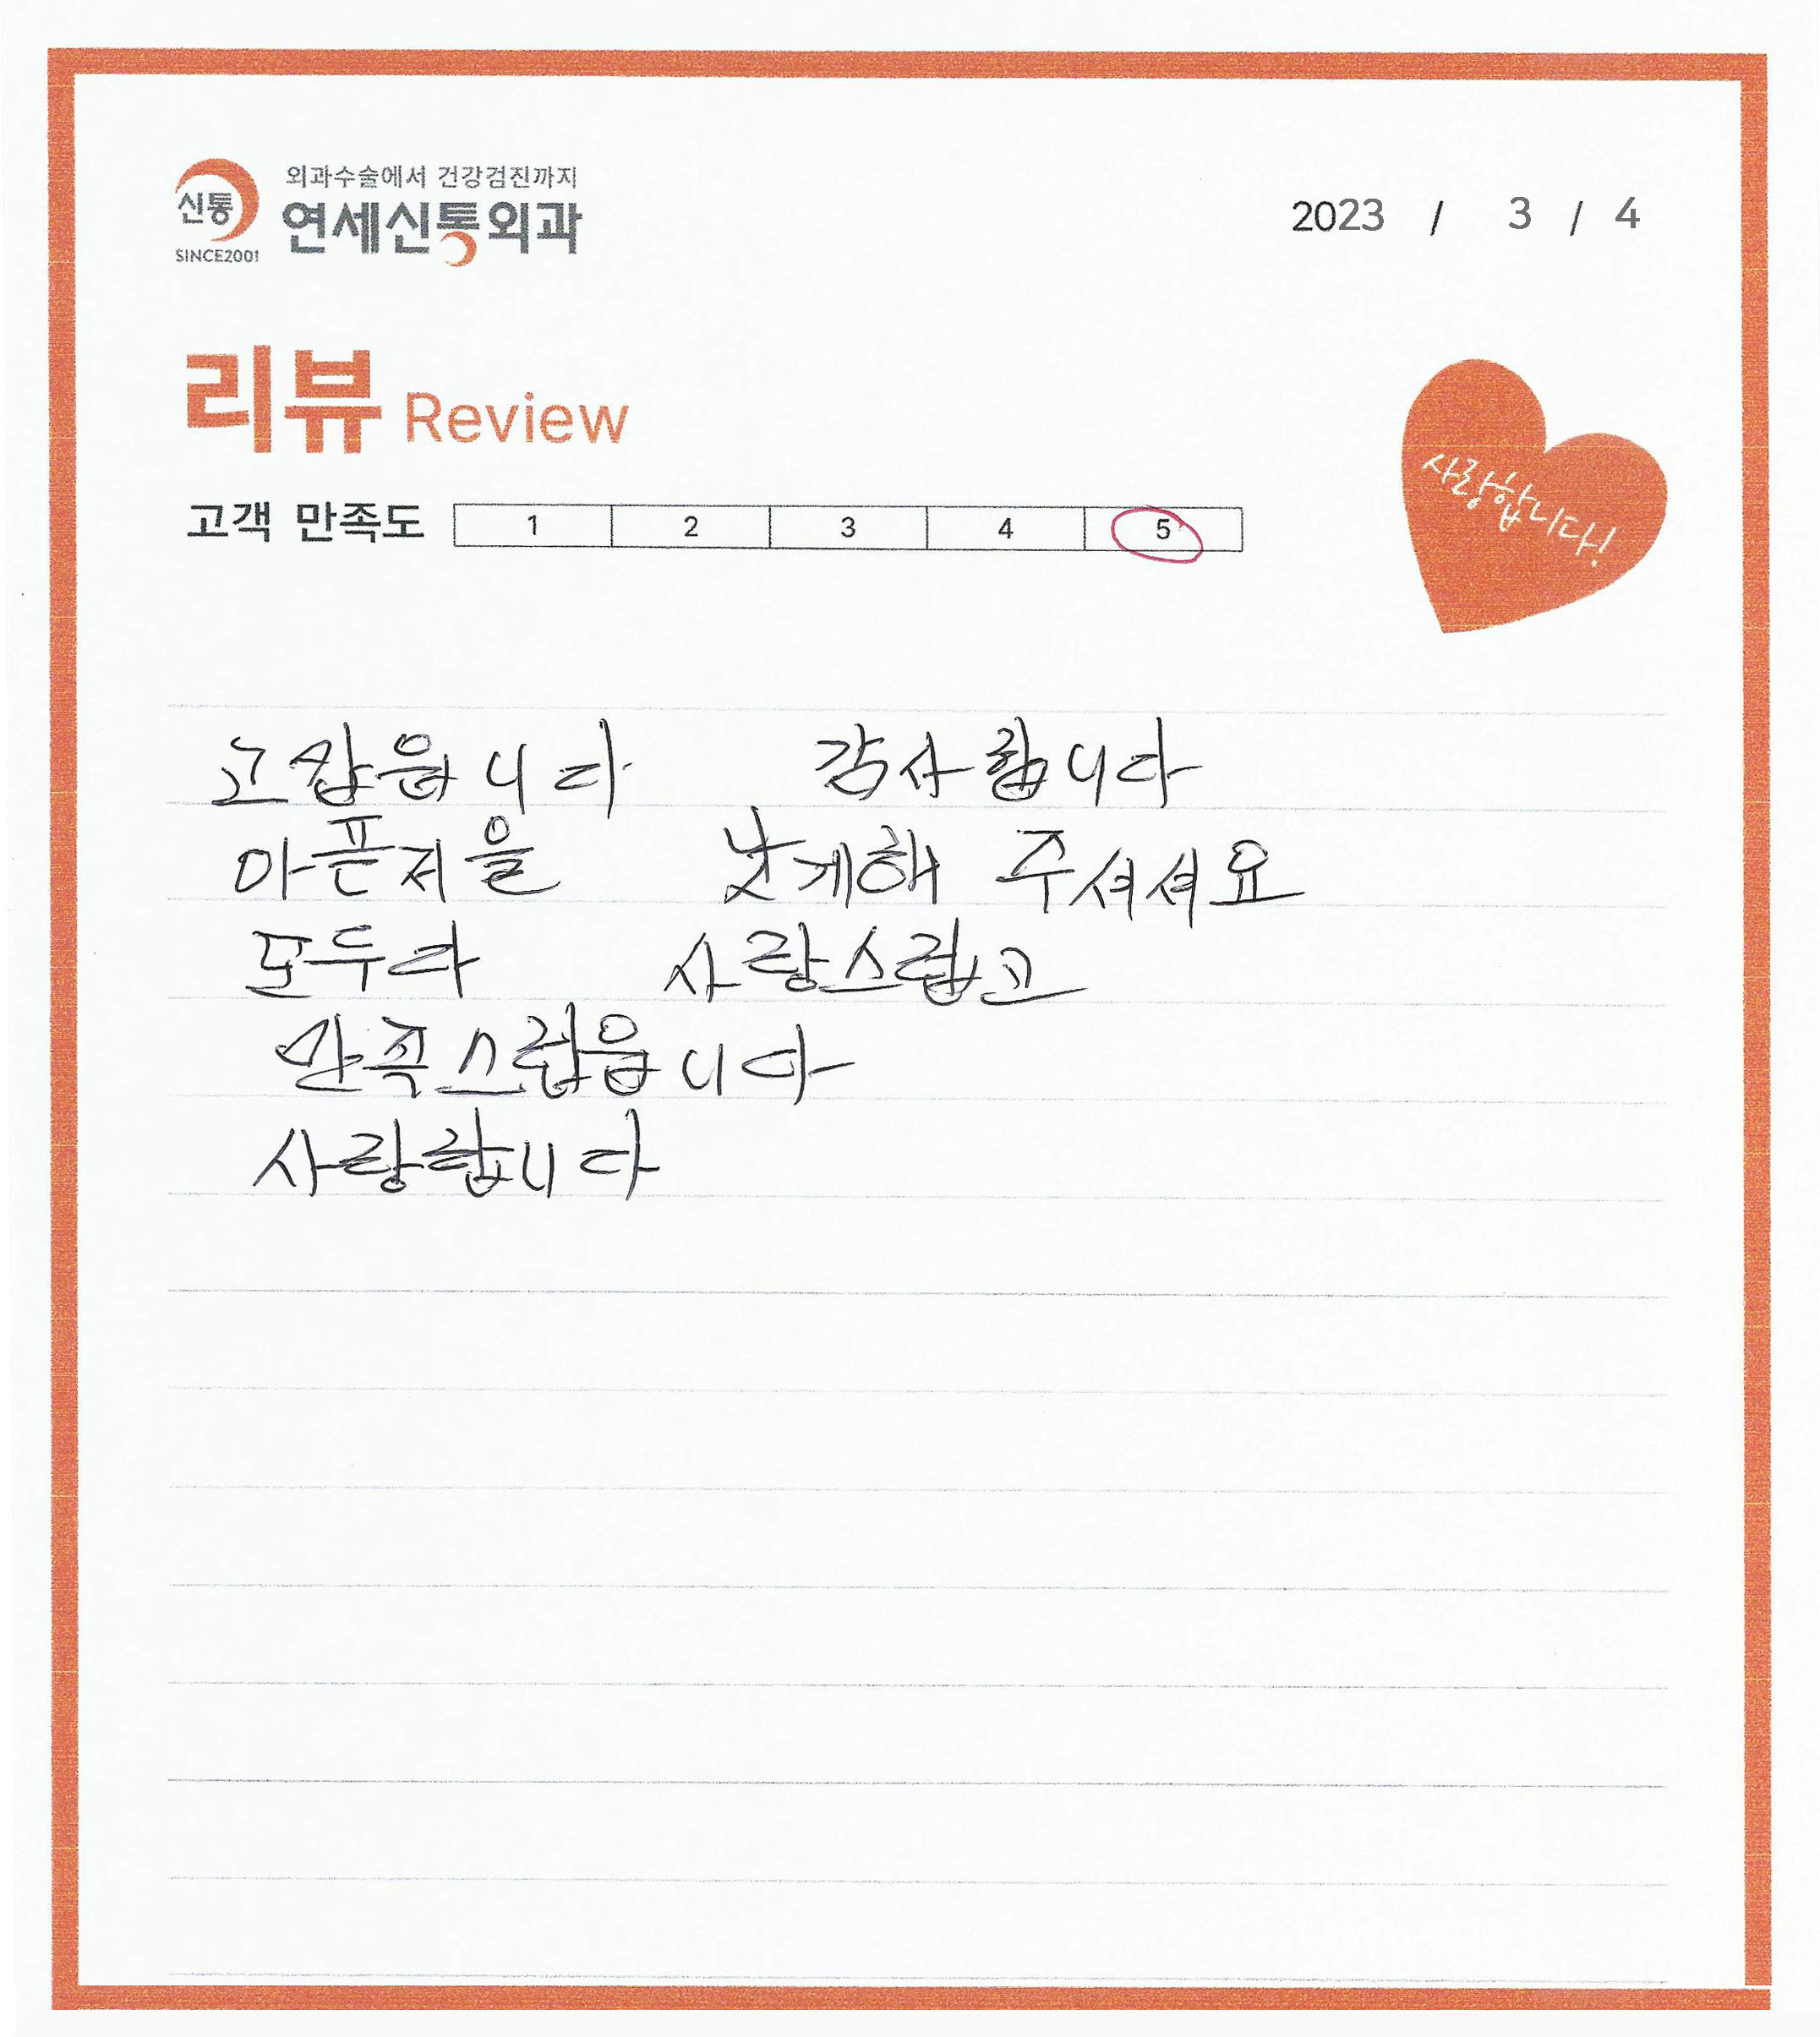 외과수술에서 건강검진까지
신통
연세신통외과
SINCE2001
2023 / 3 / 4
리뷰 Review
사랑합니다!
고객 만족도 1 2 3 4 5
고맙읍니다 감사합니다
아픈저을 낫게해 주셔셔요
모두다 사랑스럽고
만족스럽읍니다
사랑합니다